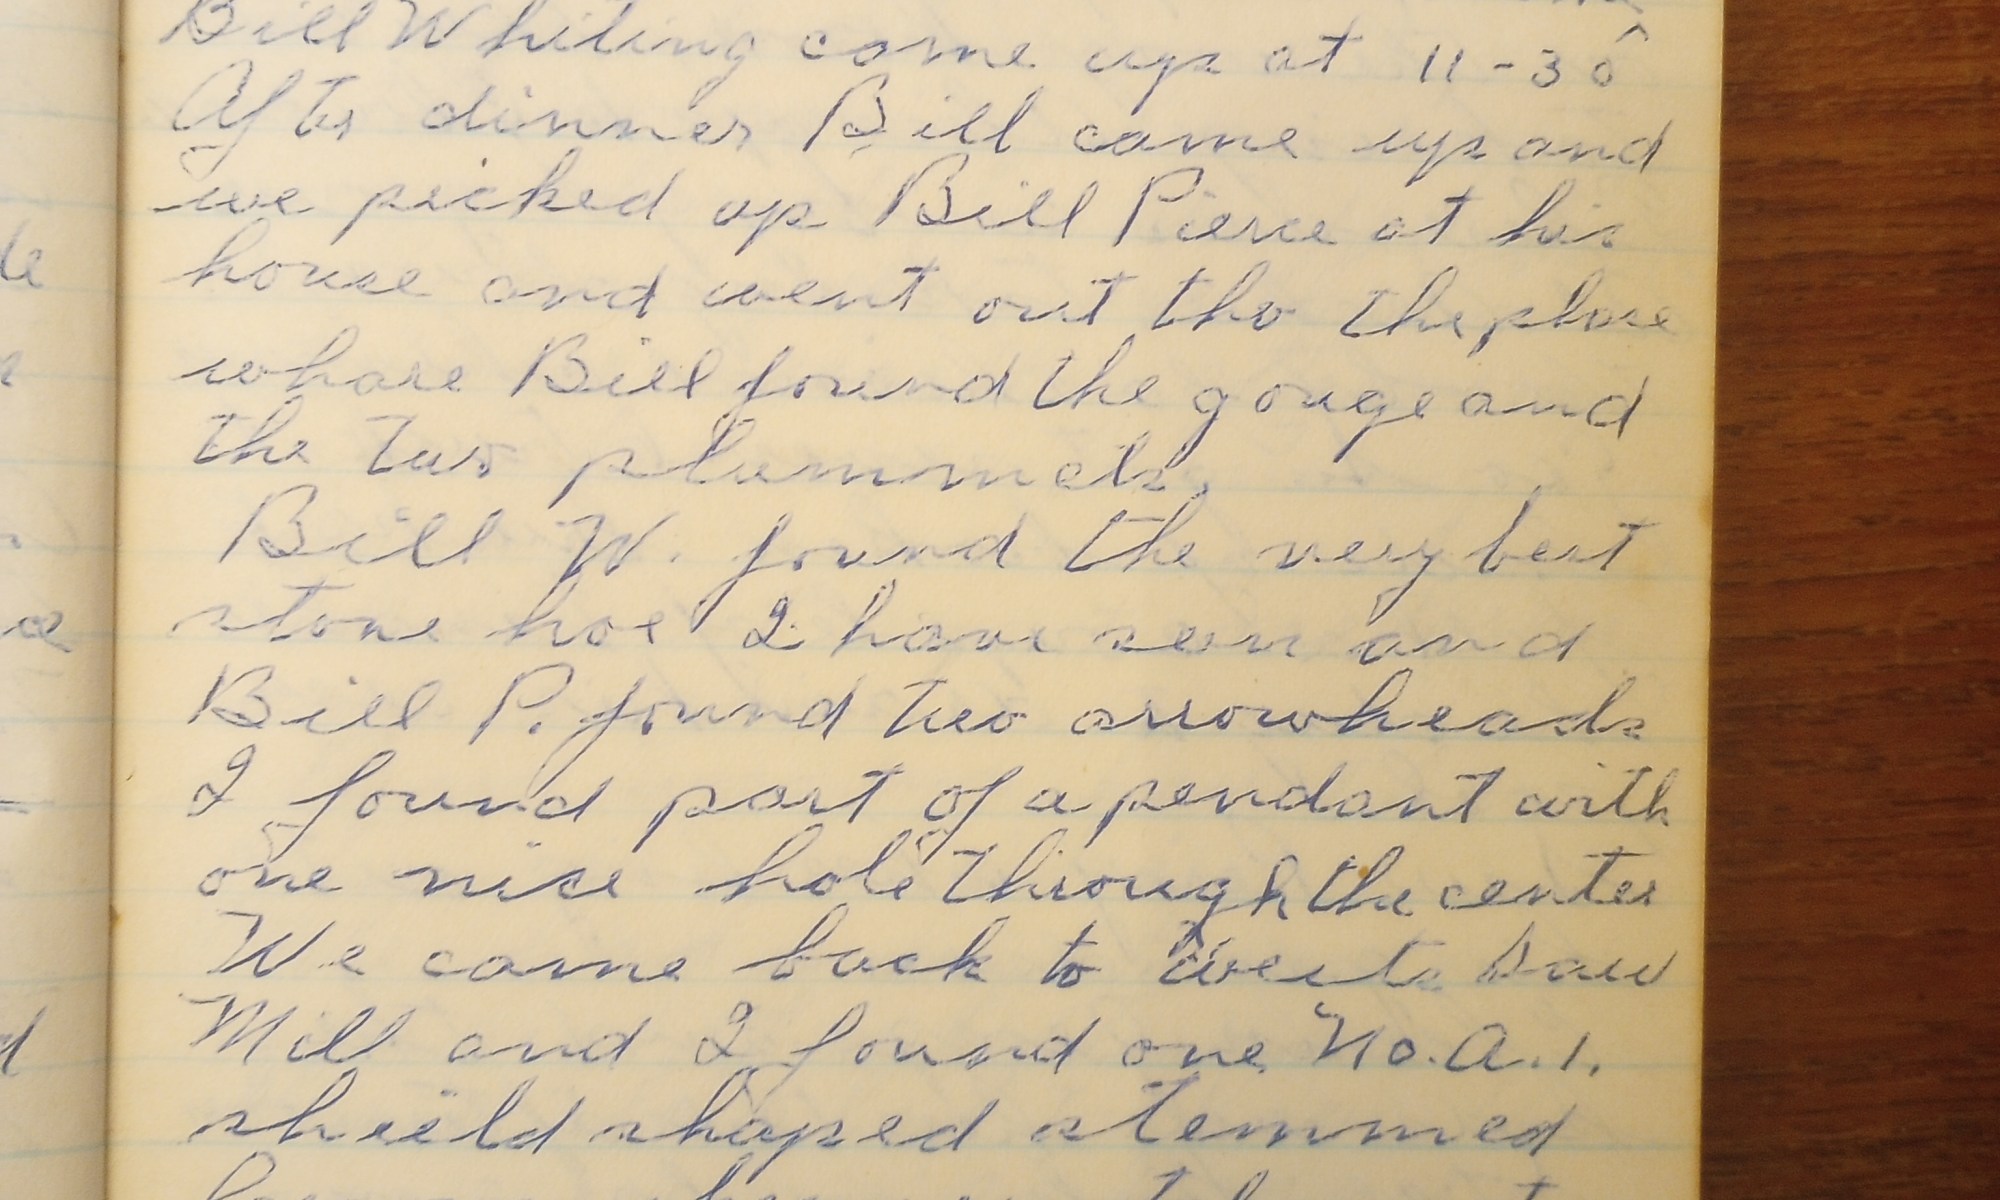 Bill Whiting come up at 11-30
After dinner Bill came up and
we picked up Bill Pierce at his
house and went out tho the place
whare Bill found the gouge and
the two plummets.
Bill W. found the very best
stone hoe I have seen and
Bill P. found two arrowheads
I found part of a pendant with
one nice hole through the center
We came back to Saw
Mill and I found one No. A. 1.
shield shaped stemmed